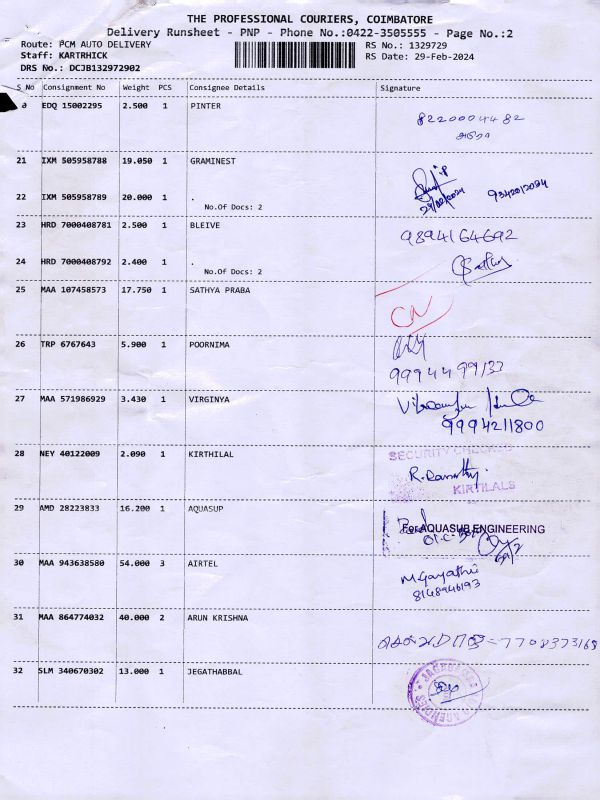 THE PROFESSIONAL COURIERS, COIMBATORE
Delivery Runsheet - PNP - Phone No.:0422-3505555 - Page No.:2
Route: PCM AUTO DELIVERY RS No.: 1329729
Staff: KARTRHICK RS Date: 29-Feb-2024
DRS No.: DCJB132972902
S No Consignment No Weight PCS Consignee Details Signature
EDQ 15002295 2.500 1 PINTER
8220004482
21 IXM 505958788 19.050 1 GRAMINEST
22 IXM 505958789 20.000 1 .
29/02/2024
No.Of Docs: 2
23 HRD 7000408781 2.500 1 BLEIVE
9894164692
24 HRD 7000408792 2.400 1 .
No.Of Docs: 2
25 MAA 107458573 17.750 1 SATHYA PRABA
CN
26 TRP 6767643 5.900 1 POORNIMA
27 MAA 571986929 3.430 1 VIRGINYA
9994211800
28 NEY 40122009 2.090 1 KIRTHILAL
SECURITY CHECKED
KIRTILALS
29 AMD 28223833 16.200 1 AQUASUP
For AQUASUB ENGINEERING
30 MAA 943638580 54.000 3 AIRTEL
M.Gayathri
8148946193
31 MAA 864774032 40.000 2 ARUN KRISHNA
7708373168
32 SLM 340670302 13.000 1 JEGATHABBAL